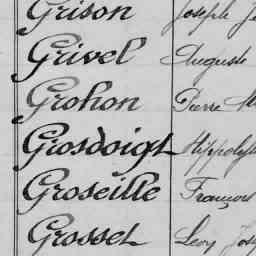 Grison Joseph
Grivel Auguste
Grohon Pierre
Grosdoigt Hippolyte
Groseille François
Grosset Leon